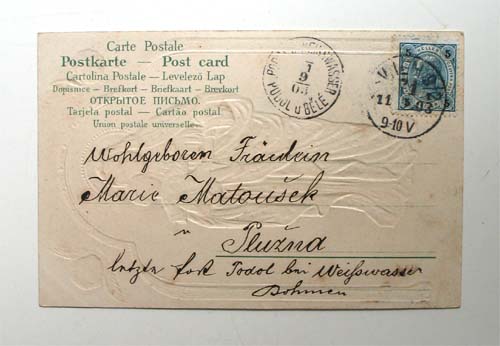 Carte Postale
Postkarte — Post card
Cartolina Postale — Levelező Lap
Dopisnice — Brefkort — Briefkaart — Brevkort
ОТКРЫТОЕ ПИСЬМО.
Tarjeta postal — Cartão postal
Union postale universelle.
PODOL U BĚLÉ
9
03
5
5
11
03
9-10 V
Wohlgeboren Fräulein
Marie Matoušek
Plužna
letzte Post Podol bei Weißwasser
Böhmen